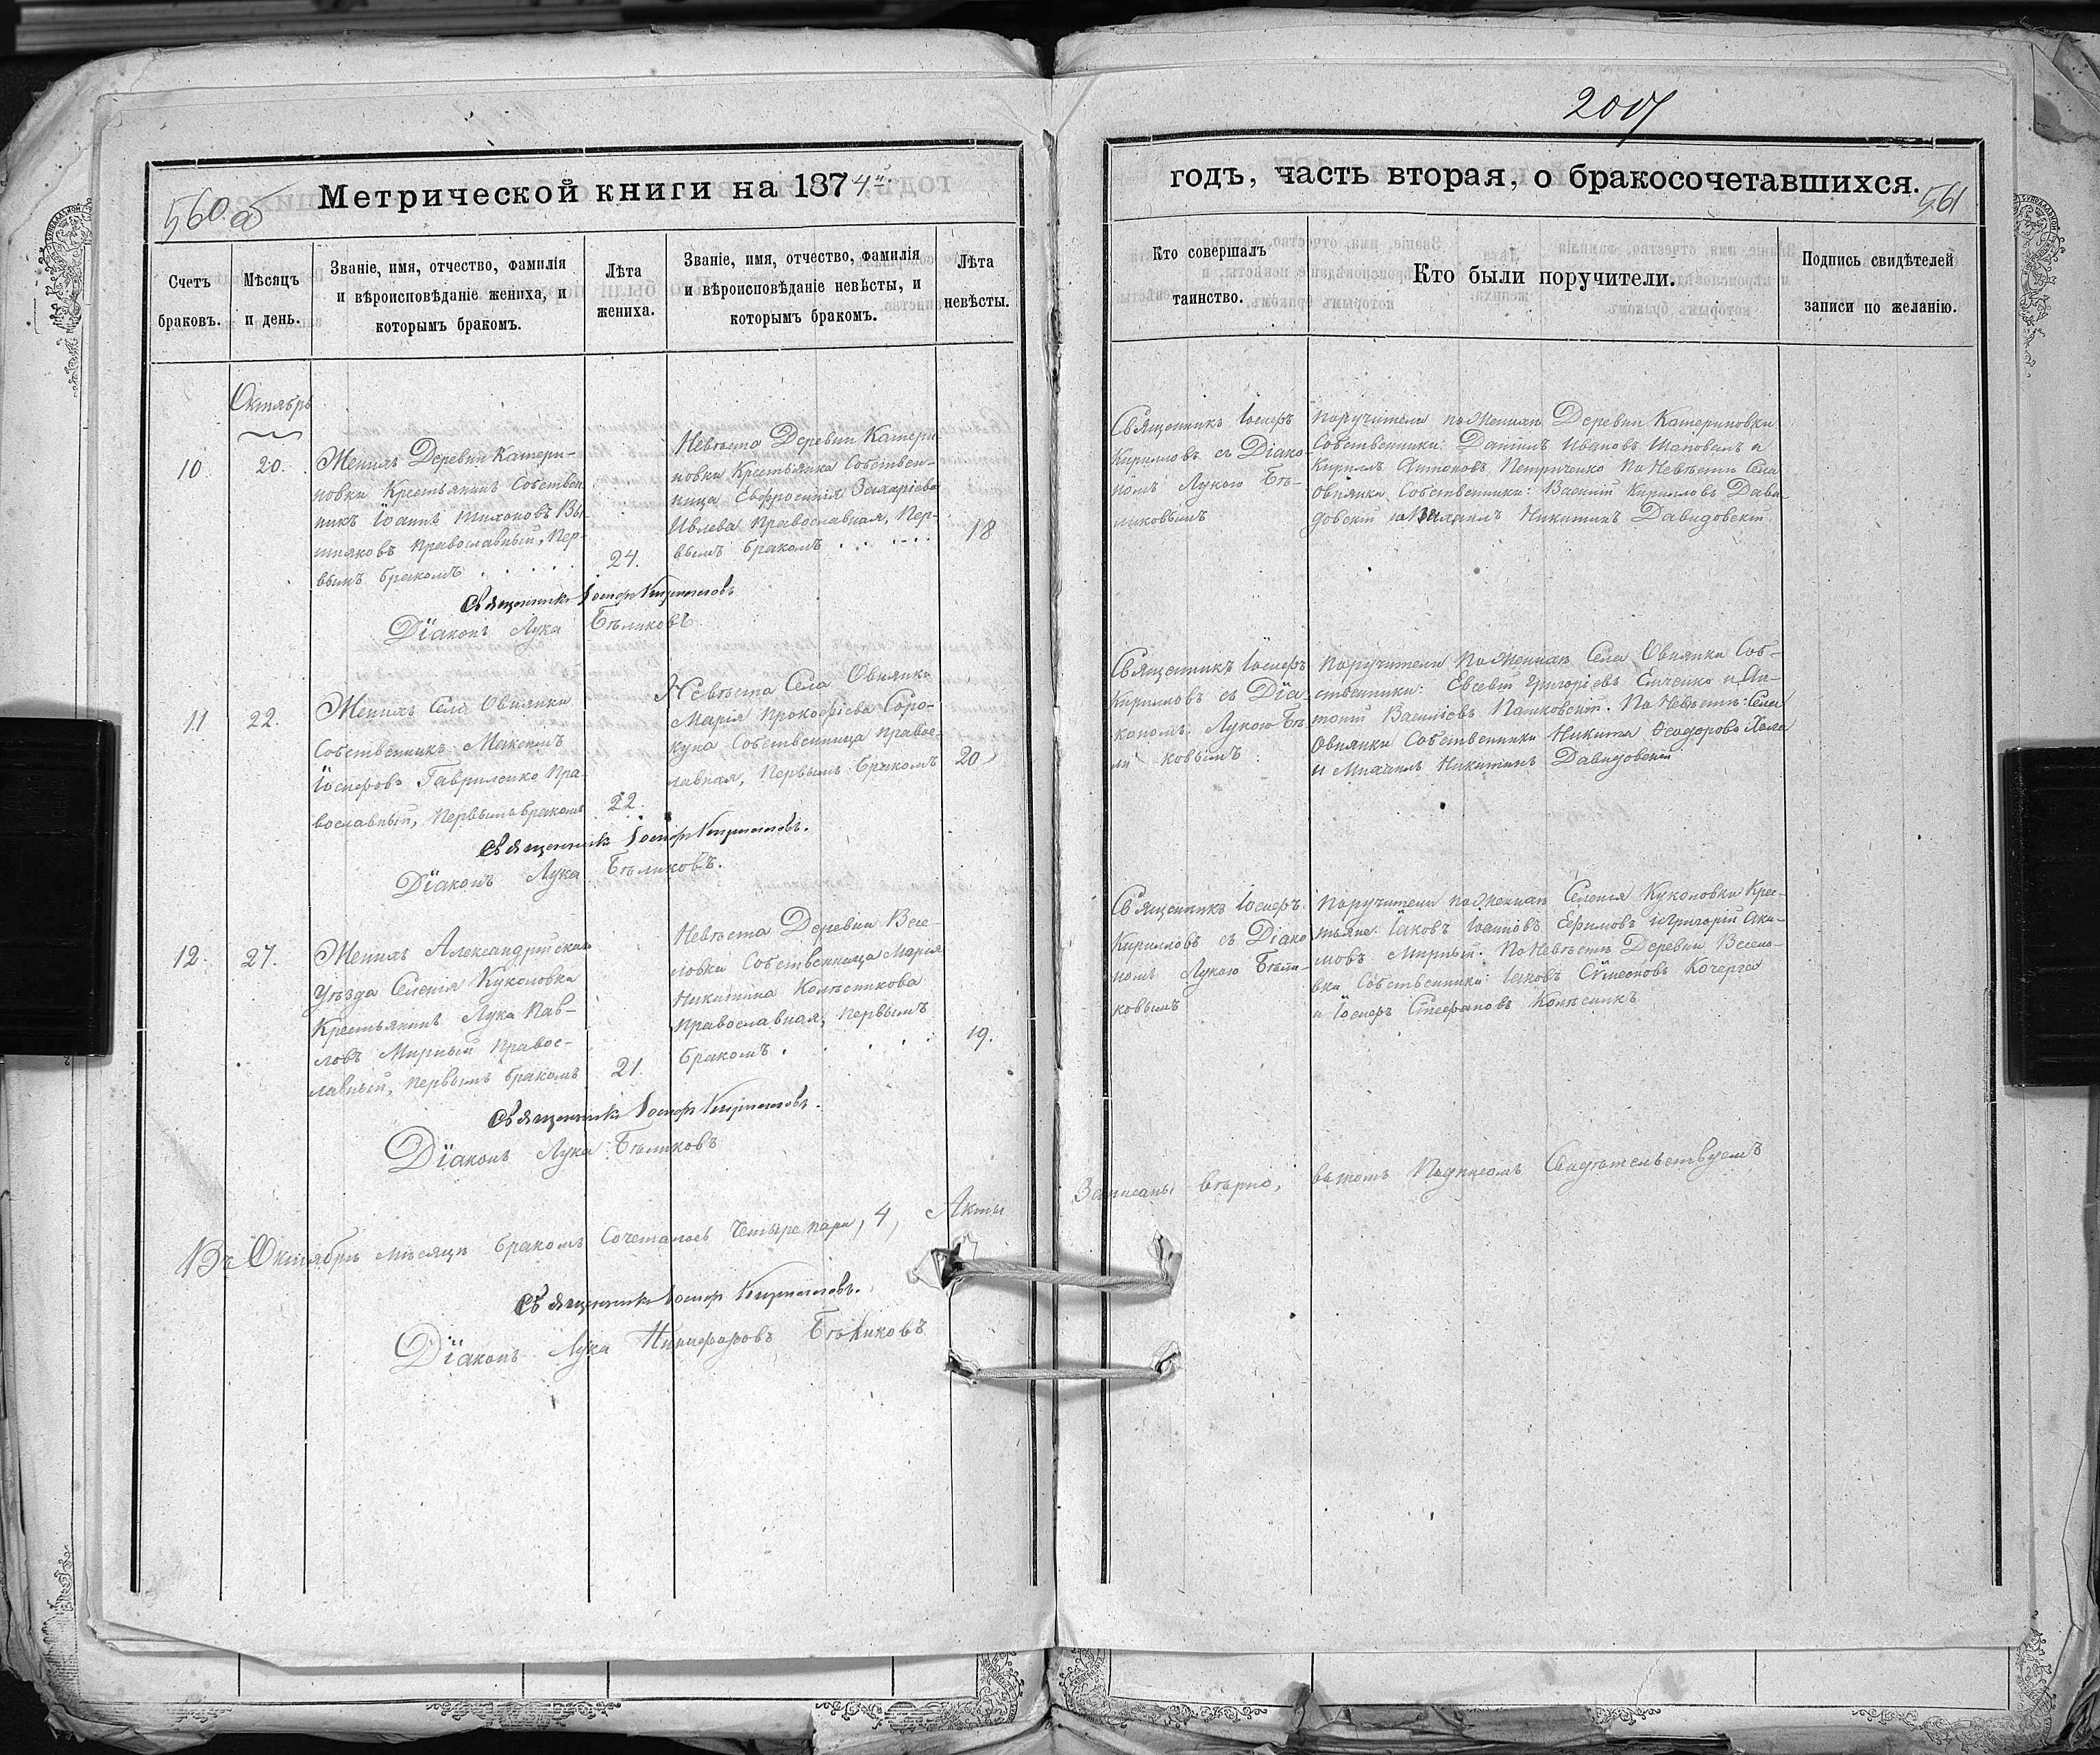 2017
Метрической книги на 1874 г.
560 об
годъ, часть вторая, о бракосочетавшихся.
561
Счетъ браковъ.
Мѣсяцъ и день.
Званіе, имя, отчество, фамилія
и вѣроисповѣданіе жениха, и
которымъ бракомъ.
Лѣта
жениха.
Званіе, имя, отчество, фамилія
и вѣроисповѣданіе невѣсты, и
которымъ бракомъ.
Лѣта
невѣсты.
Кто совершалъ
таинство.
Кто были поручители.
Подпись свидѣтелей
записи по желанію.
Октябрь
10.
20.
Женихъ Деревни Катери-
новки Крестьянинъ Собствен
никъ Іоаннъ Тихоновъ
Православный, Пер-
вымъ бракомъ
24.
Невѣста Деревни Катери
новки Крестьянка Собствен-
ница Евфросинія Захаріева
Ивлева Православная, Пер-
вымъ бракомъ
18
Священникъ Іосифъ
Кирилловъ съ Діако-
номъ Лукою Бѣ-
ликовымъ
Поручители по Женихѣ Деревни Катериновки
Собственники: Даніилъ Ивановъ Шаповалъ и
Кириллъ Антоновъ Петриченко По Невѣстѣ Села
Овнянки Собственники: Василій Кирилловъ Дави-
довскій и Михаилъ Никитинъ Давидовскій
Священникъ Іосифъ Кирилловъ
Діаконъ Лука Бѣликовъ
11
22.
Женихъ Села Овнянки
Собственникъ Максимъ
Іосифовъ Гавриленко Пра-
вославный, Первымъ бракомъ
22.
Невѣста Села Овнянки
Марія Прокофіева Соро-
купа Собственница Правос-
лавная, Первымъ бракомъ
20
Священникъ Іосифъ
Кирилловъ съ Діа-
кономъ Лукою Бѣ
ликовымъ
Поручители По Женихѣ Села Овнянки Соб-
ственники: Евсевій Григоріевъ Ильченко и Ан-
тоній Василіевъ Пашковскій. По Невѣстѣ: Села
Овнянки Собственники Никита Ѳеодоровъ
и Михаилъ Никитинъ Давидовскій
Священникъ Іосифъ Кирилловъ.
Діаконъ Лука Бѣликовъ.
12.
27.
Женихъ Александрійскаго
Уѣзда Селенія Куколовки
Крестьянинъ Лука Пав-
ловъ Мирный Правос-
лавный, Первымъ бракомъ
21.
Невѣста Деревни Весе-
ловки Собственница Марія
Никитина Колѣсникова
Православная, Первымъ
бракомъ
19.
Священникъ Іосифъ
Кирилловъ съ Діако
номъ Лукою Бѣли-
ковымъ
Поручители по Женихѣ Селенія Куколовки Крес-
тьяне: Іаковъ Іоанновъ Ефимовъ и Григорій Аки-
мовъ Мирный. По Невѣстѣ Деревни Весело-
вки Собственники: Іаковъ Симеоновъ Кочерга
и Іосифъ Стефановъ Колѣсникъ
Священникъ Іосифъ Кирилловъ.
Діаконъ Лука Бѣликовъ
Въ Октябрѣ мѣсяцѣ бракомъ Сочеталось Четыре пары, 4, Акты
Записаны вѣрно, въ томъ Подписомъ Свидѣтельствуемъ
Священникъ Іосифъ Кирилловъ.
Діаконъ Лука Никифоровъ Бѣликовъ